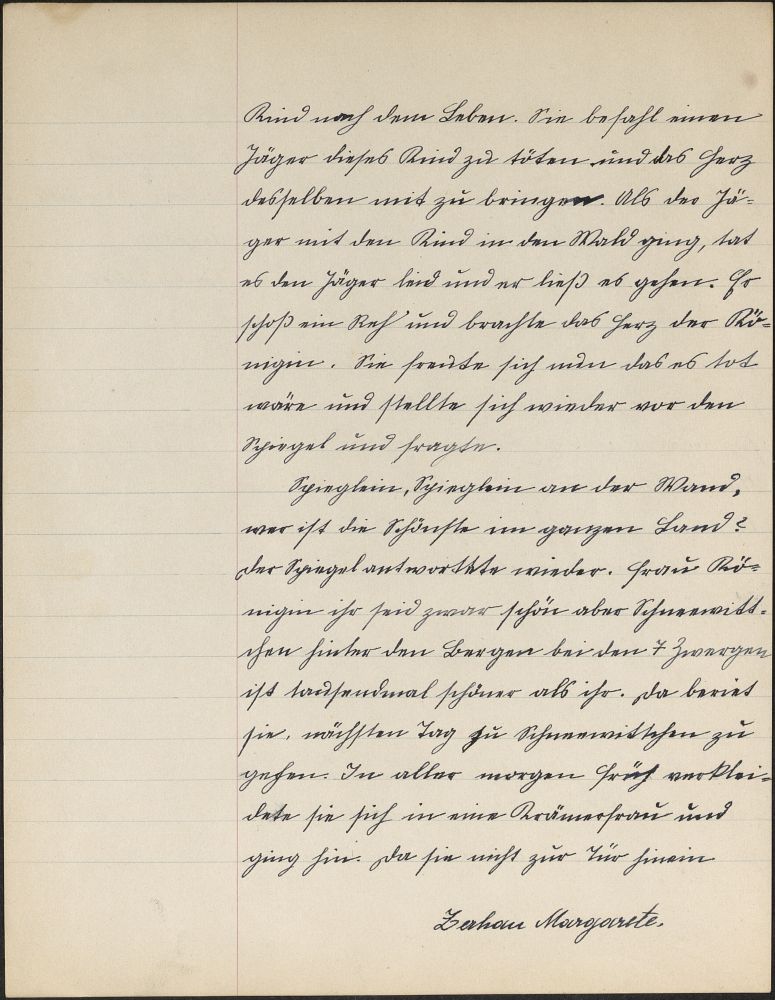 Kind nach dem Leben. Sie befahl einen
Jäger dieses Kind zu töten und das Herz
desselben mit zu bringen. Als der Jä-
ger mit den Kind in den Wald ging, tat
es den Jäger leid und er ließ es gehen. Er
schoß ein Reh und brachte das Herz der Kö-
nigin. Sie freute sich nun das es tot
wäre und stellte sich wieder vor den
Spiegel und fragte.
Spieglein, Spieglein an der Wand,
wer ist die Schönste im ganzen Land?
Der Spiegel antwortete wieder. Frau Kö-
nigin ihr seid zwar schön aber Schneewitt-
chen hinter den Bergen bei den 7 Zwergen
ist tausendmal schöner als ihr. Da beriet
sie, nächsten Tag zu Schneewittchen zu
gehen. In aller morgen früh verklei-
dete sie sich in eine Krämerfrau und
ging hin. Da sie nicht zur Tür hinein
Margarete.